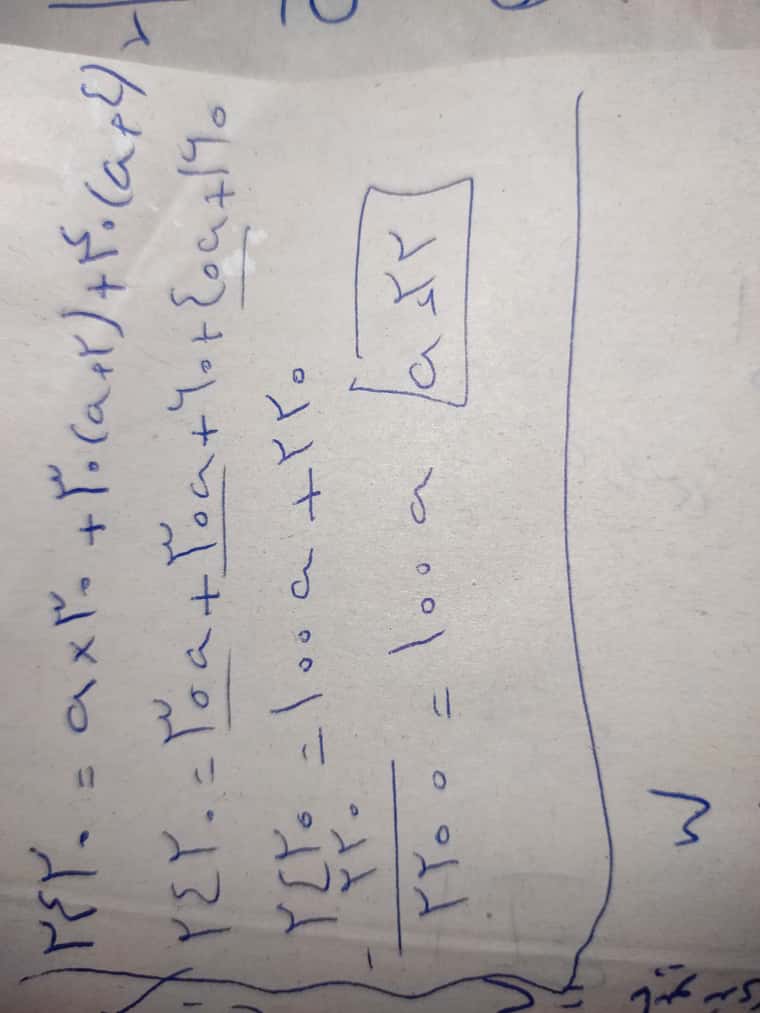 ٢٤٢٠ = a × ٣٠ + ٣٠(a+٢) + ۴٠(a+٤)
٢٤٢٠ = ٣٠a + ٣٠a + ٦٠ + ٤٠a + ١٦٠
٢٤٢٠ = ١٠٠a + ٢٢٠
- ٢٢٠
٢٢٠٠ = ١٠٠a
a = ٢٢